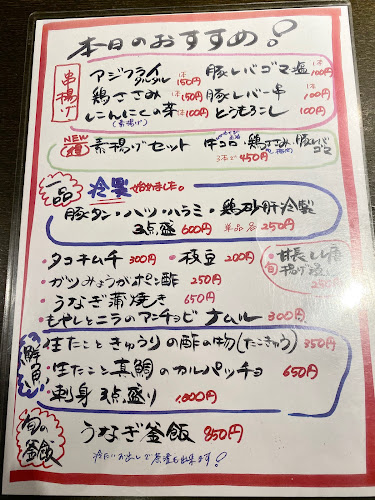 本日のおすすめ!
串揚げ
アジフライ タルタル 1本150円
豚レバゴマ塩 1本100円
鶏ささみ 1本150円
豚レバー串 1本100円
にんにくの芽 1本100円
(素揚げ)
とうもろこし 100円
NEW
素揚げセット
牛コロ・鶏ささみ・豚レバゴマ
3本で450円
一品
冷製 始めました。
豚タン・ハツ・ハラミ・鶏砂肝冷製
3点盛 600円 単品各250円
・タコキムチ 300円 ・枝豆 200円
・旬 甘長しし唐
揚げ浸し
250円
・ガツみょうがポン酢 250円
・うなぎ蒲焼き 650円
・もやしとニラのアンチョビナムル 300円
鮮魚
・生たことキゅうりの酢の物(たこきゅう) 350円
・生たこと真鯛のカルパッチョ 650円
・刺身3点盛り 1,000円
旬の釜飯
うなぎ釜飯 850円
冷たいお出しで茶漬も出来ます!